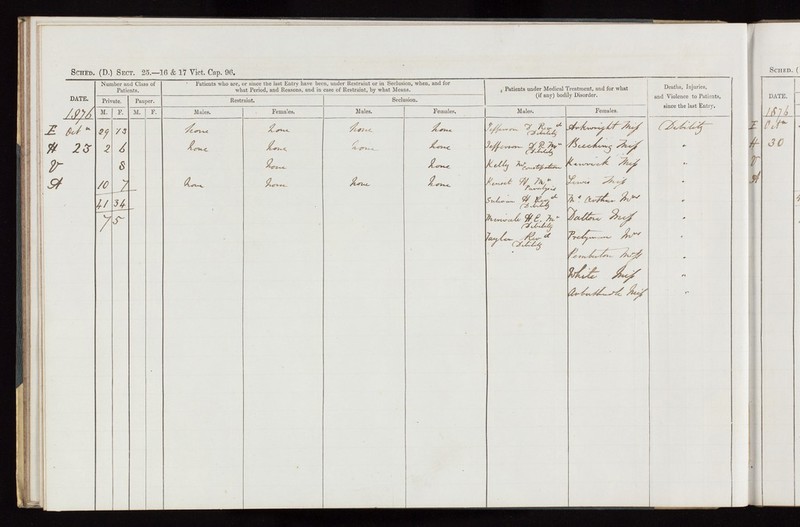 SCHED. (D.) SECT. 25.—16 & 17 Vict. Cap. 96.
DATE.
Number and Class of Patients.
Private. Pauper.
M. F. M. F.
Patients who are, or since the last Entry have been, under Restraint or in Seclusion, when, and for what Period, and Reasons, and in case of Restraint, by what Means.
Restraint. Seclusion.
Males. Females. Males. Females.
Patients under Medical Treatment, and for what (if any) bodily Disorder.
Males. Females.
Deaths, Injuries, and Violence to Patients, since the last Entry.
1876
E Oct 29 13 None None None None Jefferson Rev (Debility) Arkwright Miss (Debility)
H 23 2 6 None None None None Jefferson (Debility) Beeching Miss "
V 8 None None Kelly Mr Constipation Miss "
A 10 7 None None None None H Mr Paralysis Lewis Miss "
41 34 H Rev (Debility) Mc Mrs "
75 H.E. Mr (Debility) Dalton Miss "
Taylor Rev (Debility) Pretyman Mrs "
Pemberton Miss "
White Miss "
Arbuthnot Miss "
SCHED. (
DATE.
1876
E Oct
H 30
V
A